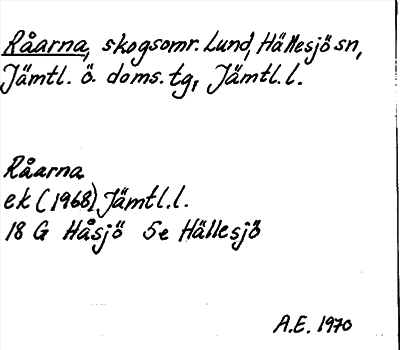 Råarna, skogsomr. Lund, Hällesjö sn,
Jämtl. ö. doms. tg, Jämtl. l.
Råarna
ek (1968) Jämtl. l.
18 G Håsjö 5e Hällesjö
A.E. 1970